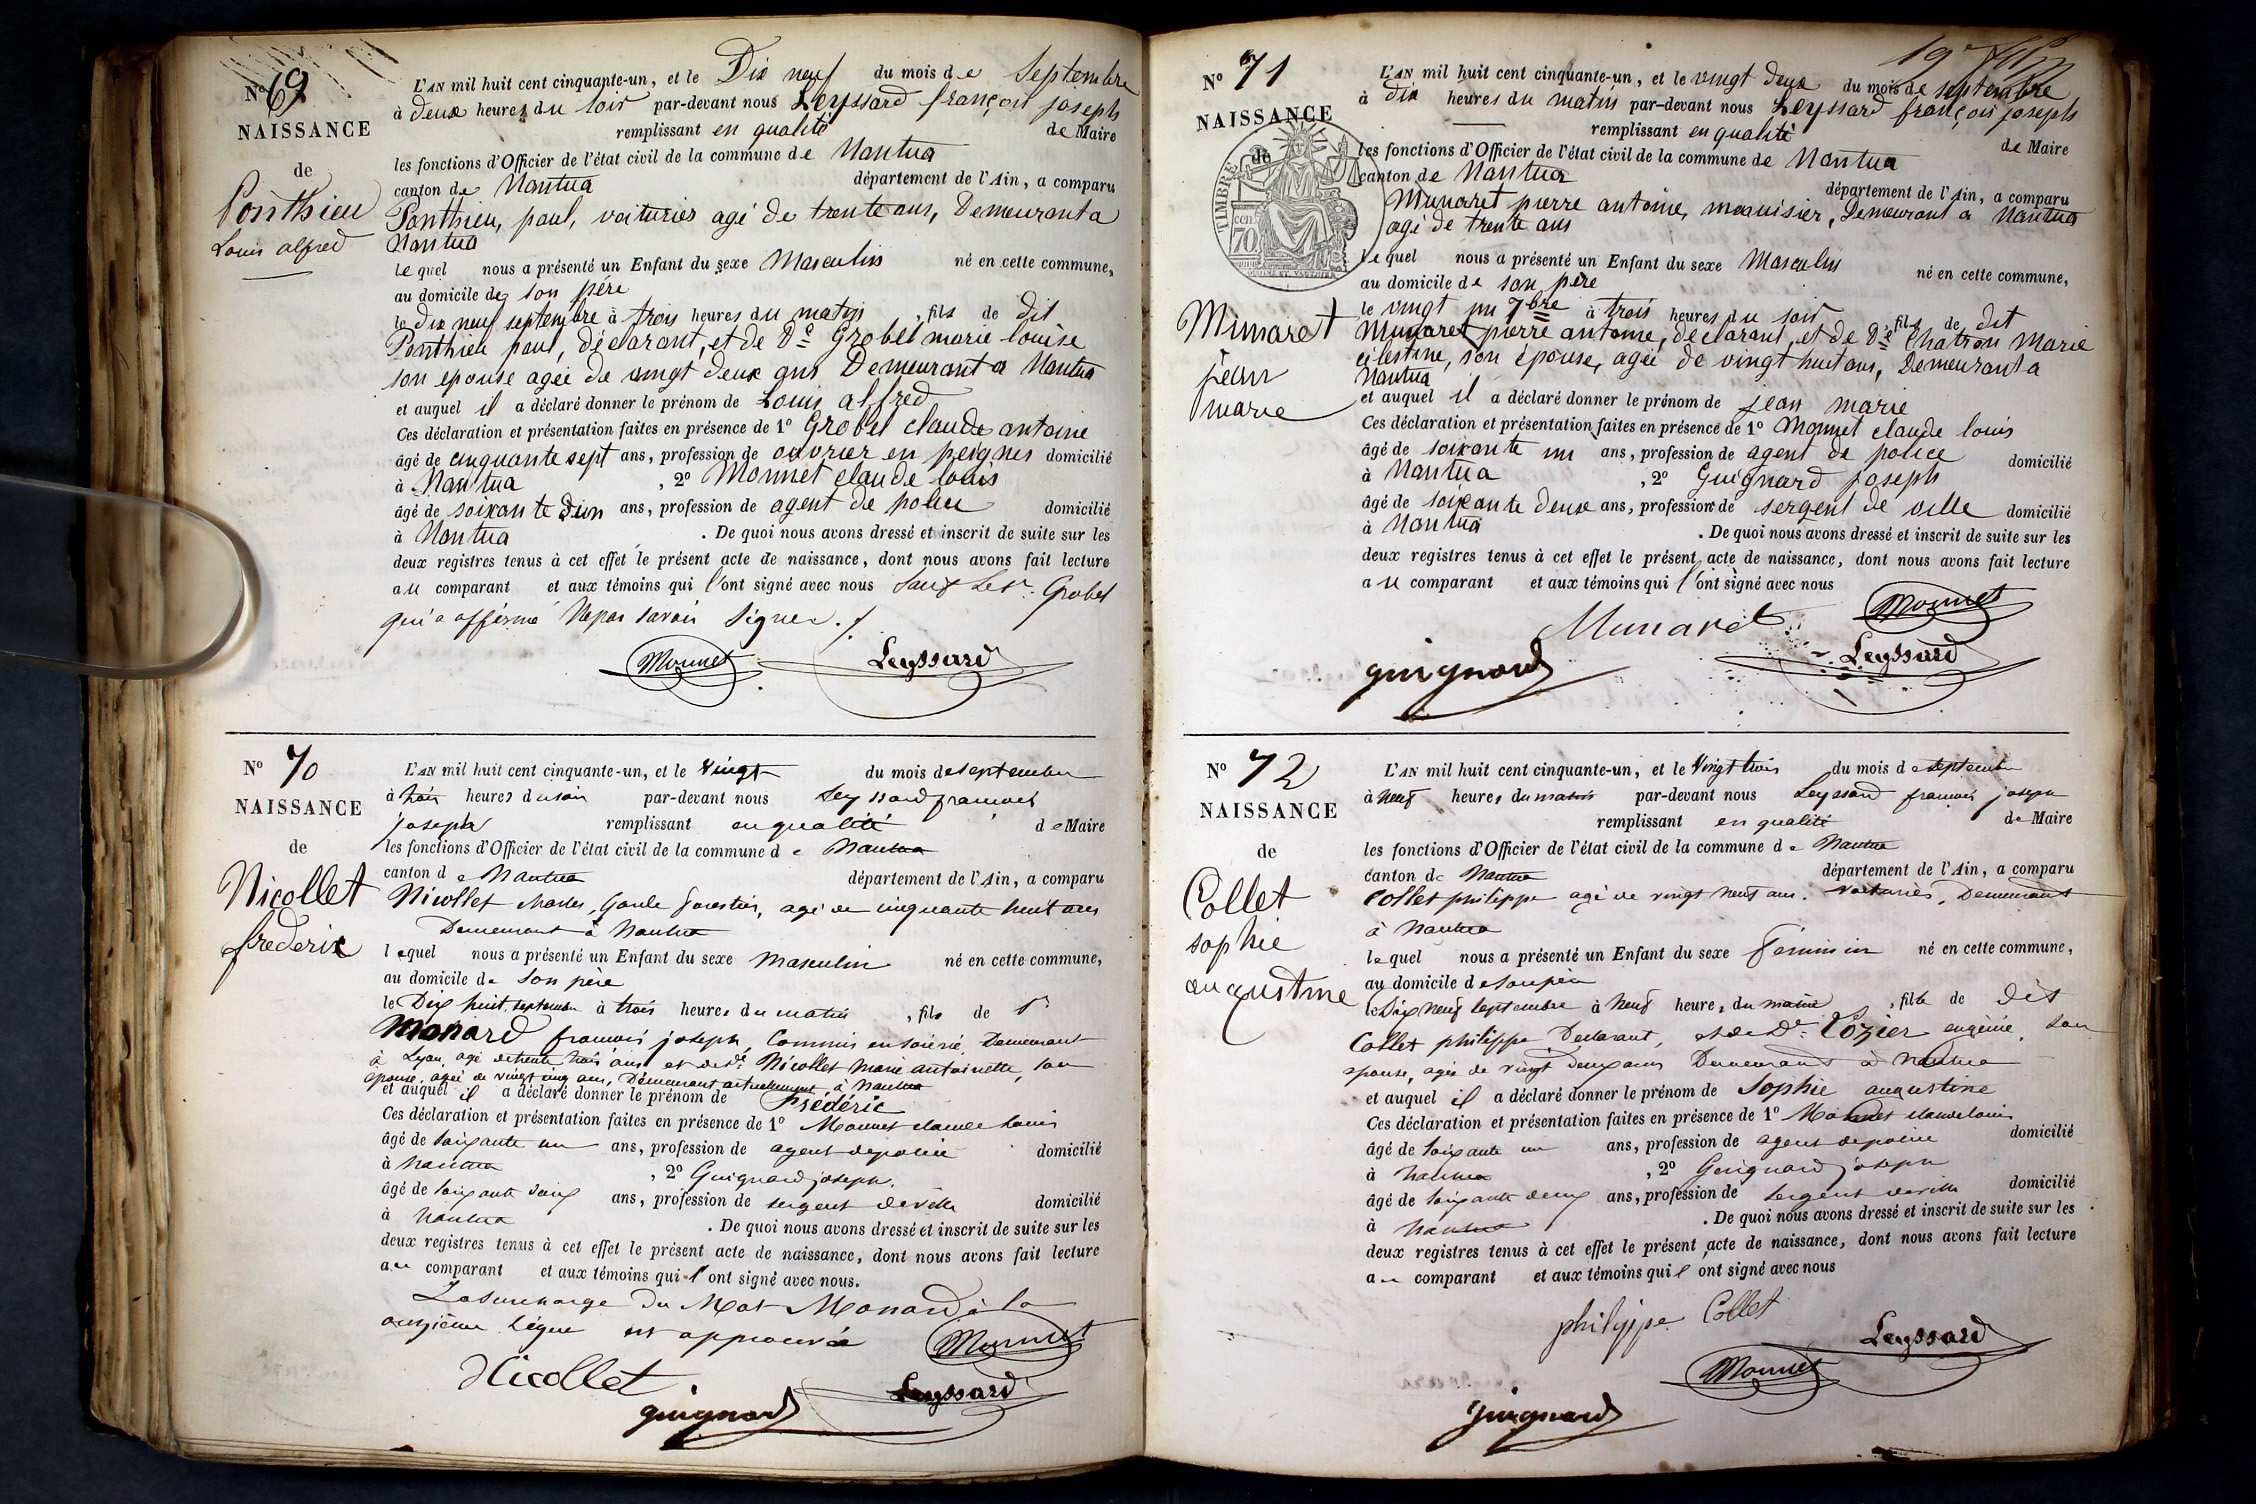 N° 69
NAISSANCE
de
Ponthieu
Louis alfred
L'AN mil huit cent cinquante-un, et le Dix neuf du mois de Septembre
à deux heures du soir par-devant nous Leyssard françois joseph
remplissant en qualité de Maire
les fonctions d'Officier de l'état civil de la commune de Nantua
canton de Nantua département de l'Ain, a comparu
Ponthieu, paul, voiturier agé de trente ans, Demeurant a
Nantua
lequel nous a présenté un Enfant du sexe Masculin né en cette commune,
au domicile de son père
le Dix neuf septembre à trois heures du matin, fils de dit
Ponthieu paul, déclarant, et de De Grobel marie louise
son epouse agée de vingt deux ans Demeurant a Nantua
et auquel il a déclaré donner le prénom de Louis alfred
Ces déclaration et présentation faites en présence de 1° Grobel claude antoine
âgé de cinquante sept ans, profession de ouvrier en peignes domicilié
à Nantua, 2° Monnet claude louis
âgé de soixante un ans, profession de agent de police domicilié
à Nantua. De quoi nous avons dressé et inscrit de suite sur les
deux registres tenus à cet effet le présent acte de naissance, dont nous avons fait lecture
au comparant et aux témoins qui l'ont signé avec nous sauf le Sr. Grobel
qui a afférmé Ne pas savoir Signer./.
Monnet Leyssard
N° 70
NAISSANCE
de
Nicollet
frederic
L'AN mil huit cent cinquante-un, et le Vingt du mois de septembre
à trois heures du soir par-devant nous Leyssard francois
joseph remplissant en qualité de Maire
les fonctions d'Officier de l'état civil de la commune de Nantua
canton de Nantua département de l'Ain, a comparu
Nicollet charles, Garde forestier, agé de cinquante huit ans
Demeurant à Nantua
lequel nous a présenté un Enfant du sexe Masculin né en cette commune,
au domicile de son père
le Dix huit septembre à trois heures du matin, fils de Sr
Monard francois joseph, Commis en soierie, Demeurant
à Lyon, agé de trente trois ans et de De Nicollet Marie antoinette, son
épouse, agée de vingt cinq ans, Demeurant actuellement à Nantua
et auquel il a déclaré donner le prénom de Frédéric
Ces déclaration et présentation faites en présence de 1° Monnet claude louis
âgé de soixante un ans, profession de agent de police domicilié
à Nantua, 2° Guignard joseph.
âgé de soixante deux ans, profession de sergent de ville domicilié
à Nantua. De quoi nous avons dressé et inscrit de suite sur les
deux registres tenus à cet effet le présent acte de naissance, dont nous avons fait lecture
au comparant et aux témoins qui l'ont signé avec nous.
La surcharge du Mot Monard à la
onzième ligne est approuvée
Monnet
Nicollet Leyssard
guignard
19
N° 71
NAISSANCE
de
TIMBRE
70
Munaret
jean
marie
L'AN mil huit cent cinquante-un, et le vingt deux du mois de septembre
à dix heures du matin par-devant nous Leyssard françois joseph
remplissant en qualité de Maire
les fonctions d'Officier de l'état civil de la commune de Nantua
canton de Nantua département de l'Ain, a comparu
Munaret pierre antoine, menuisier, Demeurant a Nantua
agé de trente ans
lequel nous a présenté un Enfant du sexe Masculin né en cette commune,
au domicile de son père
le vingt un 7bre à trois heures du soir, fils de dit
Munaret pierre antoine, déclarant, et de De Chatron Marie
célestine, son épouse, agée de vingt huit ans, Demeurant a
Nantua
et auquel il a déclaré donner le prénom de jean marie
Ces déclaration et présentation faites en présence de 1° Monnet claude louis
âgé de soixante un ans, profession de agent de police domicilié
à Nantua, 2° Guignard joseph
âgé de soixante deux ans, profession de sergent de ville domicilié
à Nantua. De quoi nous avons dressé et inscrit de suite sur les
deux registres tenus à cet effet le présent acte de naissance, dont nous avons fait lecture
au comparant et aux témoins qui l'ont signé avec nous
Munaret Monnet
guignard Leyssard
N° 72
NAISSANCE
de
Collet
sophie
augustine
L'AN mil huit cent cinquante-un, et le Vingt trois du mois de septembre
à neuf heures du matin par-devant nous Leyssard francois joseph
remplissant en qualité de Maire
les fonctions d'Officier de l'état civil de la commune de Nantua
canton de Nantua département de l'Ain, a comparu
Collet philippe agé de vingt neuf ans. voiturier, Demeurant
à Nantua
lequel nous a présenté un Enfant du sexe féminin né en cette commune,
au domicile de son père
le Dix neuf septembre à neuf heures du matin, fille de dit
Collet philippe Déclarant, et de De. Cozier eugénie, son
epouse, agée de vingt deux ans Demeurant à Nantua
et auquel il a déclaré donner le prénom de Sophie augustine
Ces déclaration et présentation faites en présence de 1° Monnet claude louis
âgé de soixante un ans, profession de agent de police domicilié
à Nantua, 2° Guignard joseph
âgé de soixante deux ans, profession de sergent de ville domicilié
à Nantua. De quoi nous avons dressé et inscrit de suite sur les
deux registres tenus à cet effet le présent acte de naissance, dont nous avons fait lecture
au comparant et aux témoins qui l'ont signé avec nous
philippe Collet
Leyssard
Monnet
guignard